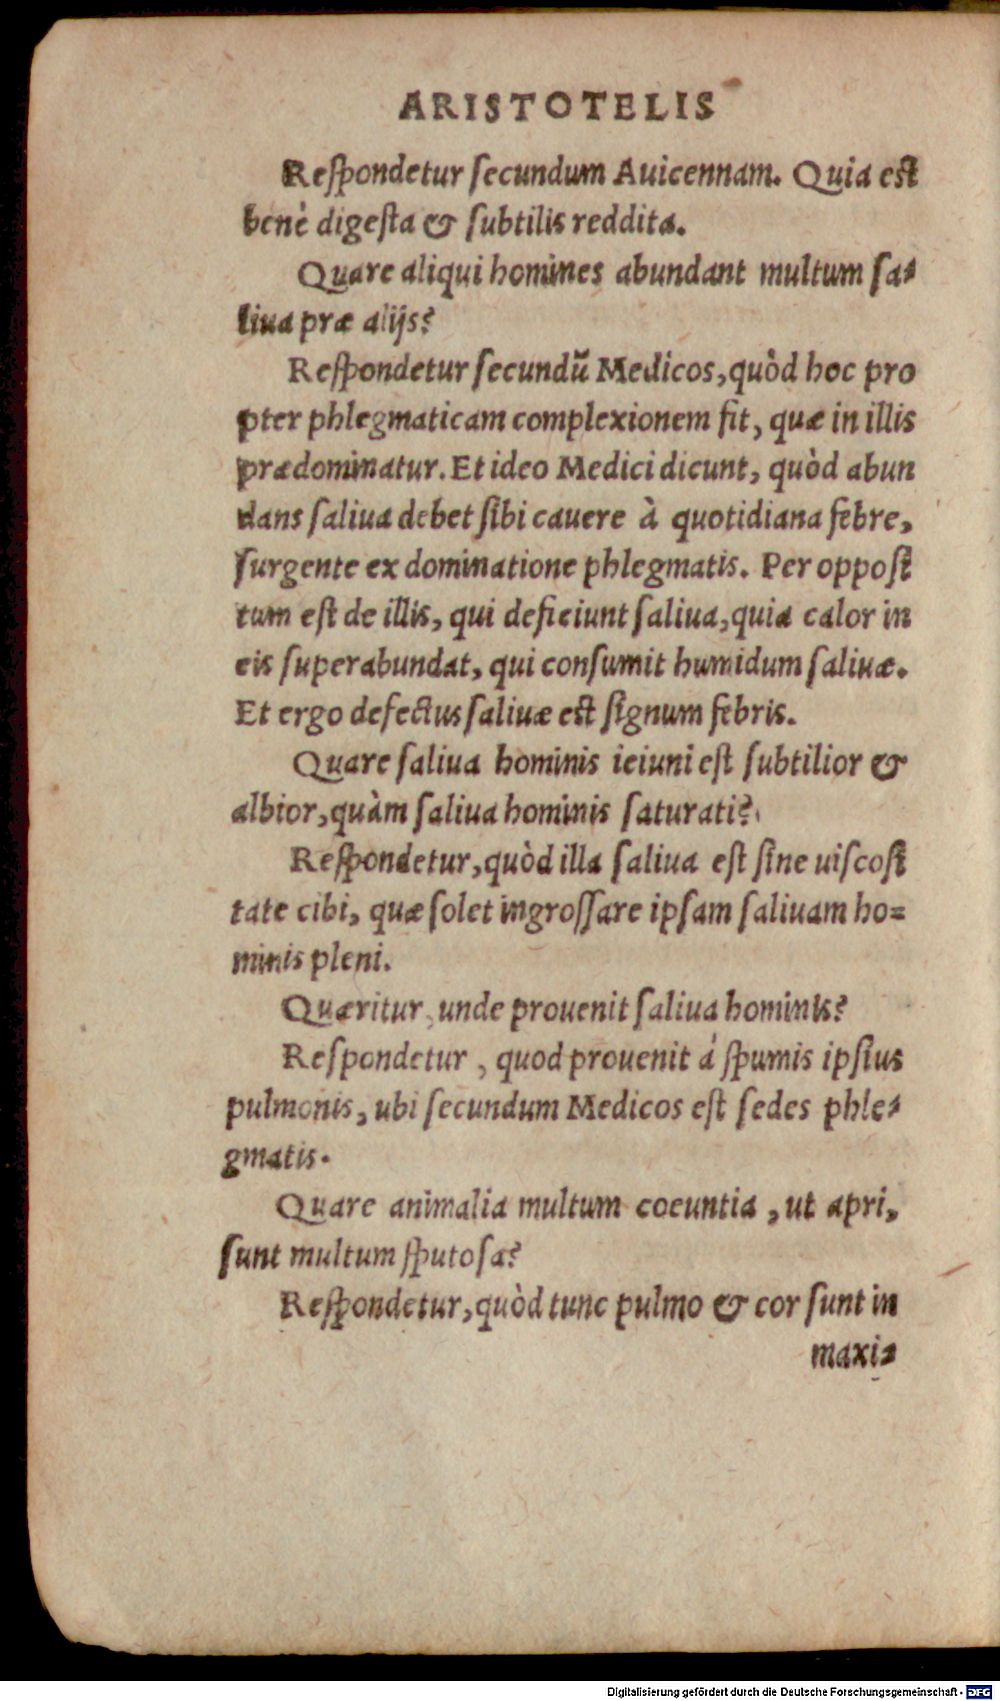 ARISTOTELIS
Reſpondetur ſecundum Auicennam. Quia eſt
benè digeſta & ſubtilis reddita.
Quare aliqui homines abundant multum ſa-
liua præ alijs?
Reſpondetur ſecundũ Medicos, quòd hoc pro
pter phlegmaticam complexionem fit, quæ in illis
prædominatur. Et ideo Medici dicunt, quòd abun
dans ſaliua debet ſibi cauere à quotidiana febre,
ſurgente ex dominatione phlegmatis. Per oppoſi
tum eſt de illis, qui deficiunt ſaliua, quia calor in
eis ſuperabundat, qui conſumit humidum ſaliuæ.
Et ergo defectus ſaliuæ eſt ſignum febris.
Quare ſaliua hominis ieiuni eſt ſubtilior &
albior, quàm ſaliua hominis ſaturati?
Reſpondetur, quòd illa ſaliua eſt ſine uiſcoſi
tate cibi, quæ ſolet ingroſſare ipſam ſaliuam ho=
minis pleni.
Quæritur, unde prouenit ſaliua hominis?
Reſpondetur, quod prouenit á ſpumis ipſius
pulmonis, ubi ſecundum Medicos eſt ſedes phle-
gmatis.
Quare animalia multum coeuntia, ut apri,
ſunt multum ſputoſa?
Reſpondetur, quòd tunc pulmo & cor ſunt in
maxi-
Digitalisierung gefördert durch die Deutsche Forschungsgemeinschaft - DFG